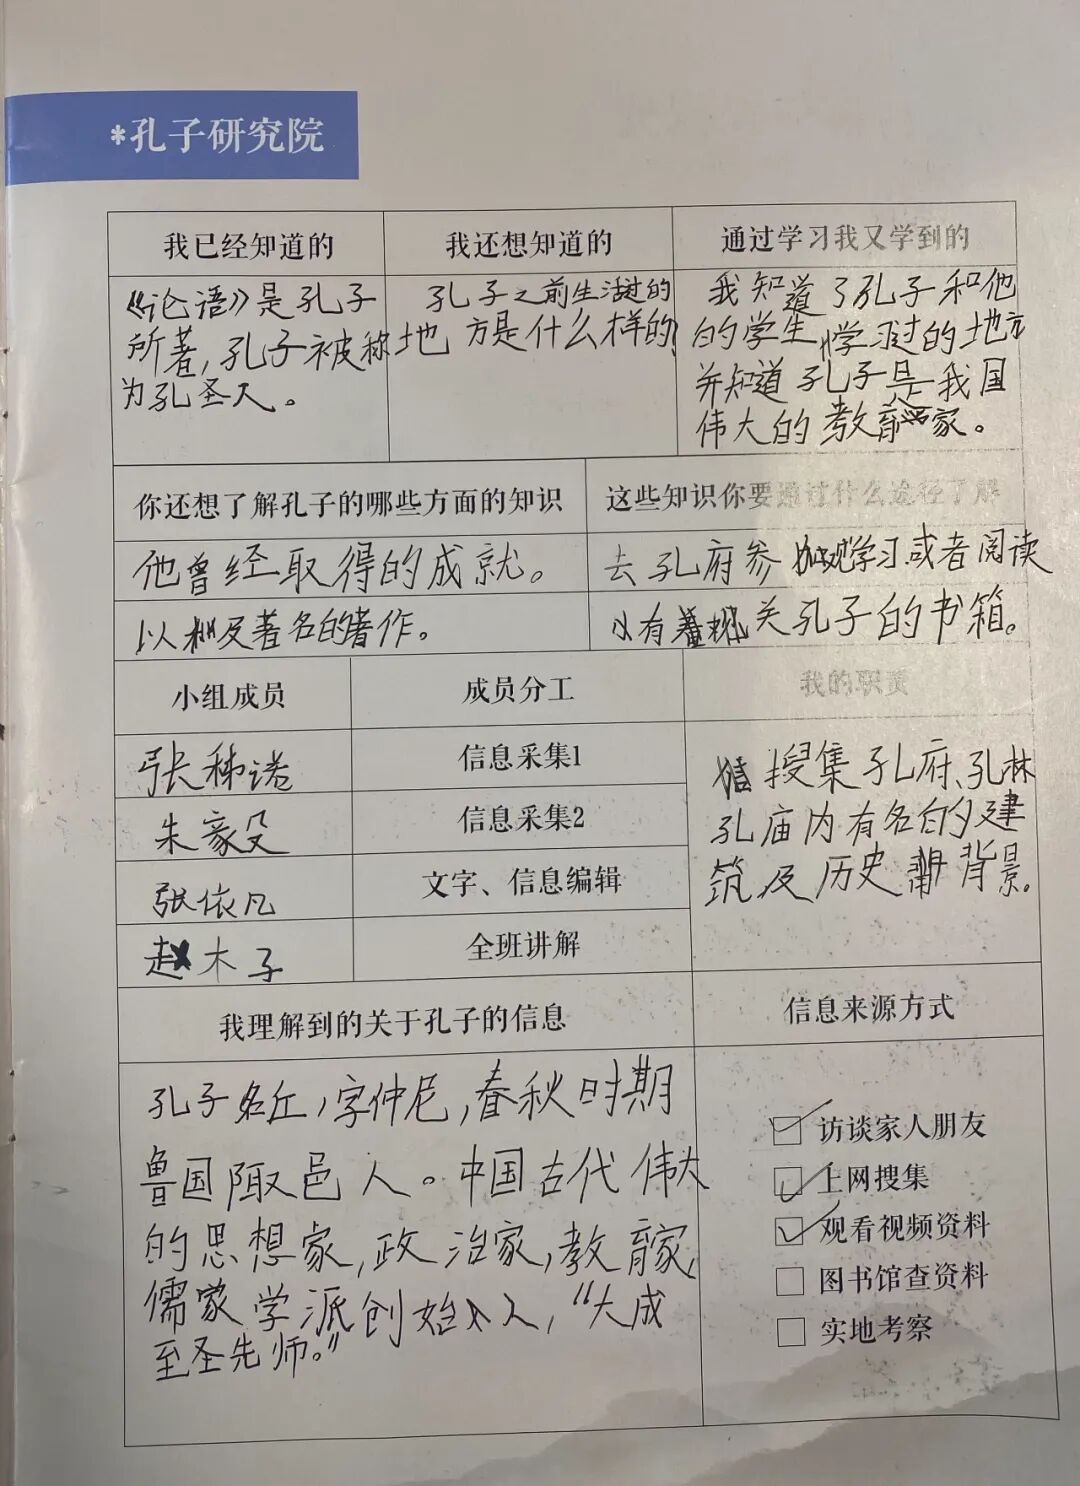 *孔子研究院
我已经知道的
我还想知道的
通过学习我又学到的
《论语》是孔子
所著，孔子被称
为孔圣人。
孔子之前生活过的
地方是什么样的
我知道了孔子和他
的学生学习过的地方
并知道孔子是我国
伟大的教育家。
你还想了解孔子的哪些方面的知识
这些知识你要通过什么途径了解
他曾经取得的成就。
去孔府参观学习.或者阅读
以及著名的著作。
有关孔子的书箱。
小组成员
成员分工
我的职责
张
信息采集1
搜集孔府、孔林
孔庙内有名的建
筑及历史背景。
朱家
信息采集2
张依凡
文字、信息编辑
赵木子
全班讲解
我理解到的关于孔子的信息
信息来源方式
孔子名丘，字仲尼，春秋时期
鲁国陬邑人。中国古代伟大
的思想家，政治家，教育家，
儒家学派创始人，“大成
至圣先师。”
访谈家人朋友
上网搜集
观看视频资料
图书馆查资料
实地考察